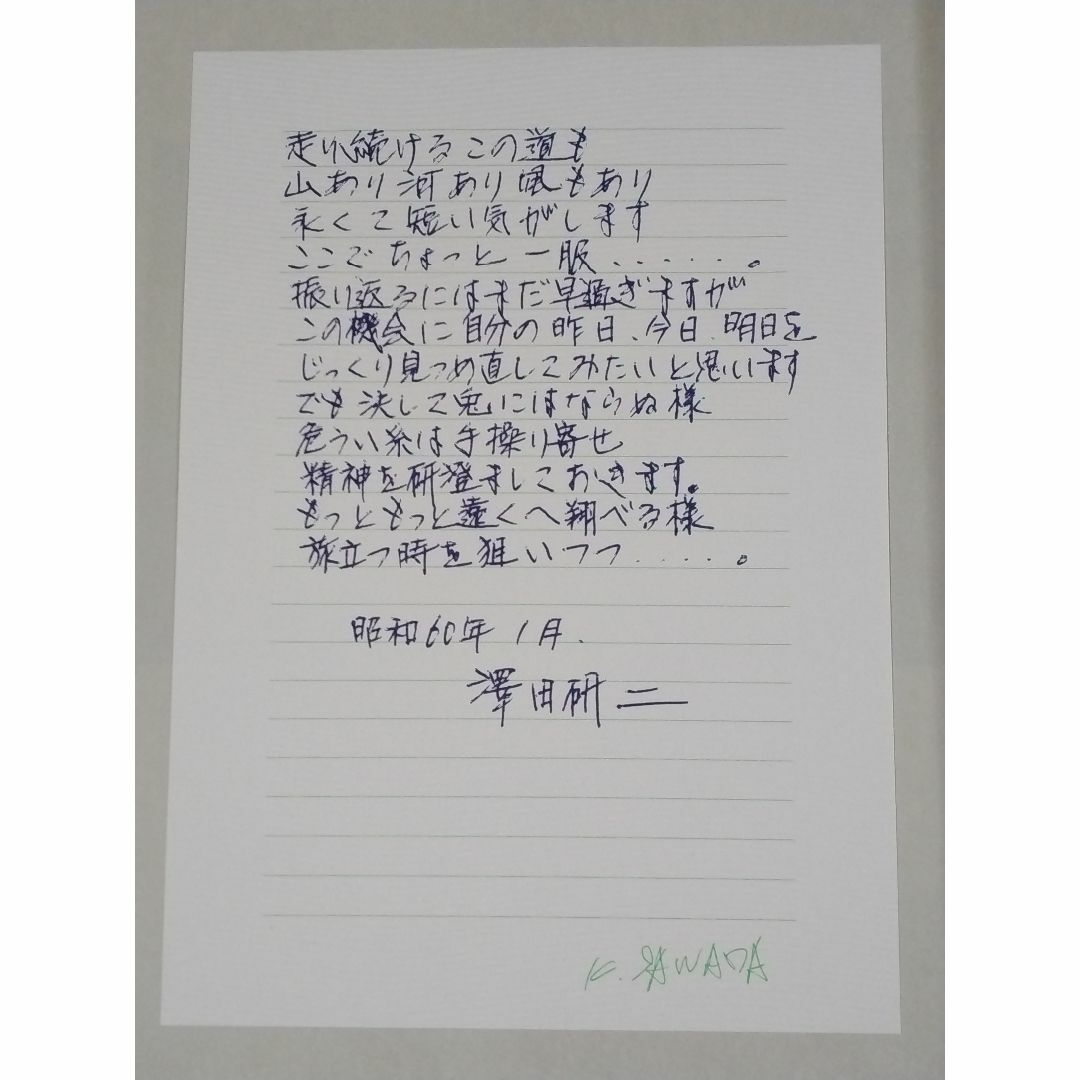 走り続けるこの道も
山あり河あり風もあり
永くて短い気がします
ここでちょっと一服......。
振り返るにはまだ早過ぎますが
この機会に自分の昨日、今日、明日を
じっくり見つめ直してみたいと思います
でも決して鬼にはならぬ様
危うい糸は手操り寄せ
精神を研澄ましておきます。
もっともっと遠くへ翔べる様
旅立つ時を狙いつつ.....。
昭和60年1月.
澤田研二
K. SAWADA